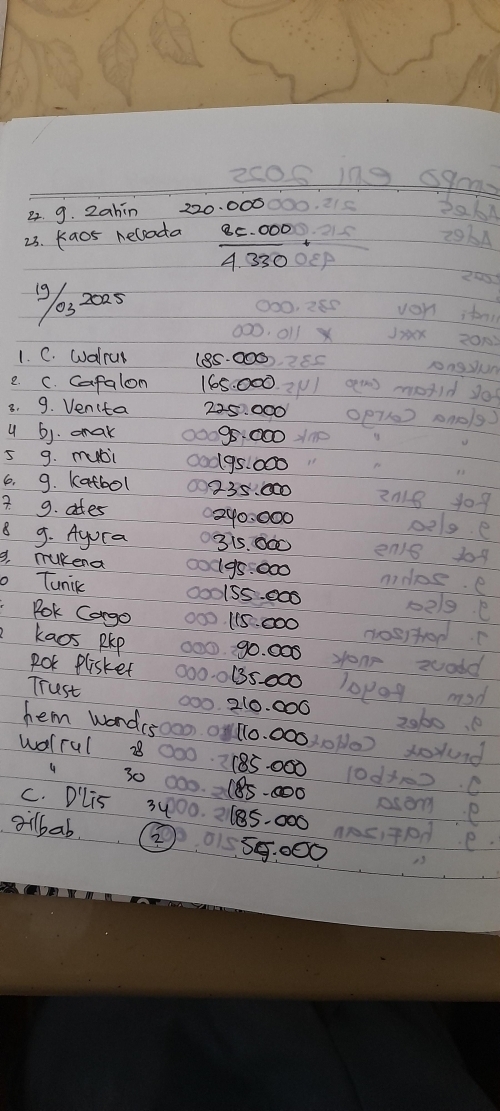 22. g. Zahin 220.000
23. Kaos nevada 85.000 +
4.330
19/03 2025
1. C. Walrus 185.000
2. C. Cafalon 165.000
3. g. Venita 225.000
4 bj. anak 95.000
5 g. mutil 195.000
6. g. katbol 235.000
7. g. ades 240.000
8 g. Ayura 315.000
9. Mukena 195.000
0 Tunik 155.000
Rok Cargo 115.000
kaos Rkp 90.000
Rok Plisket 135.000
Trust 210.000
hem Wondis 110.000
Walrul 28 185.000
" 30 185.000
C. D'Lis 34 185.000
Jilbab 2